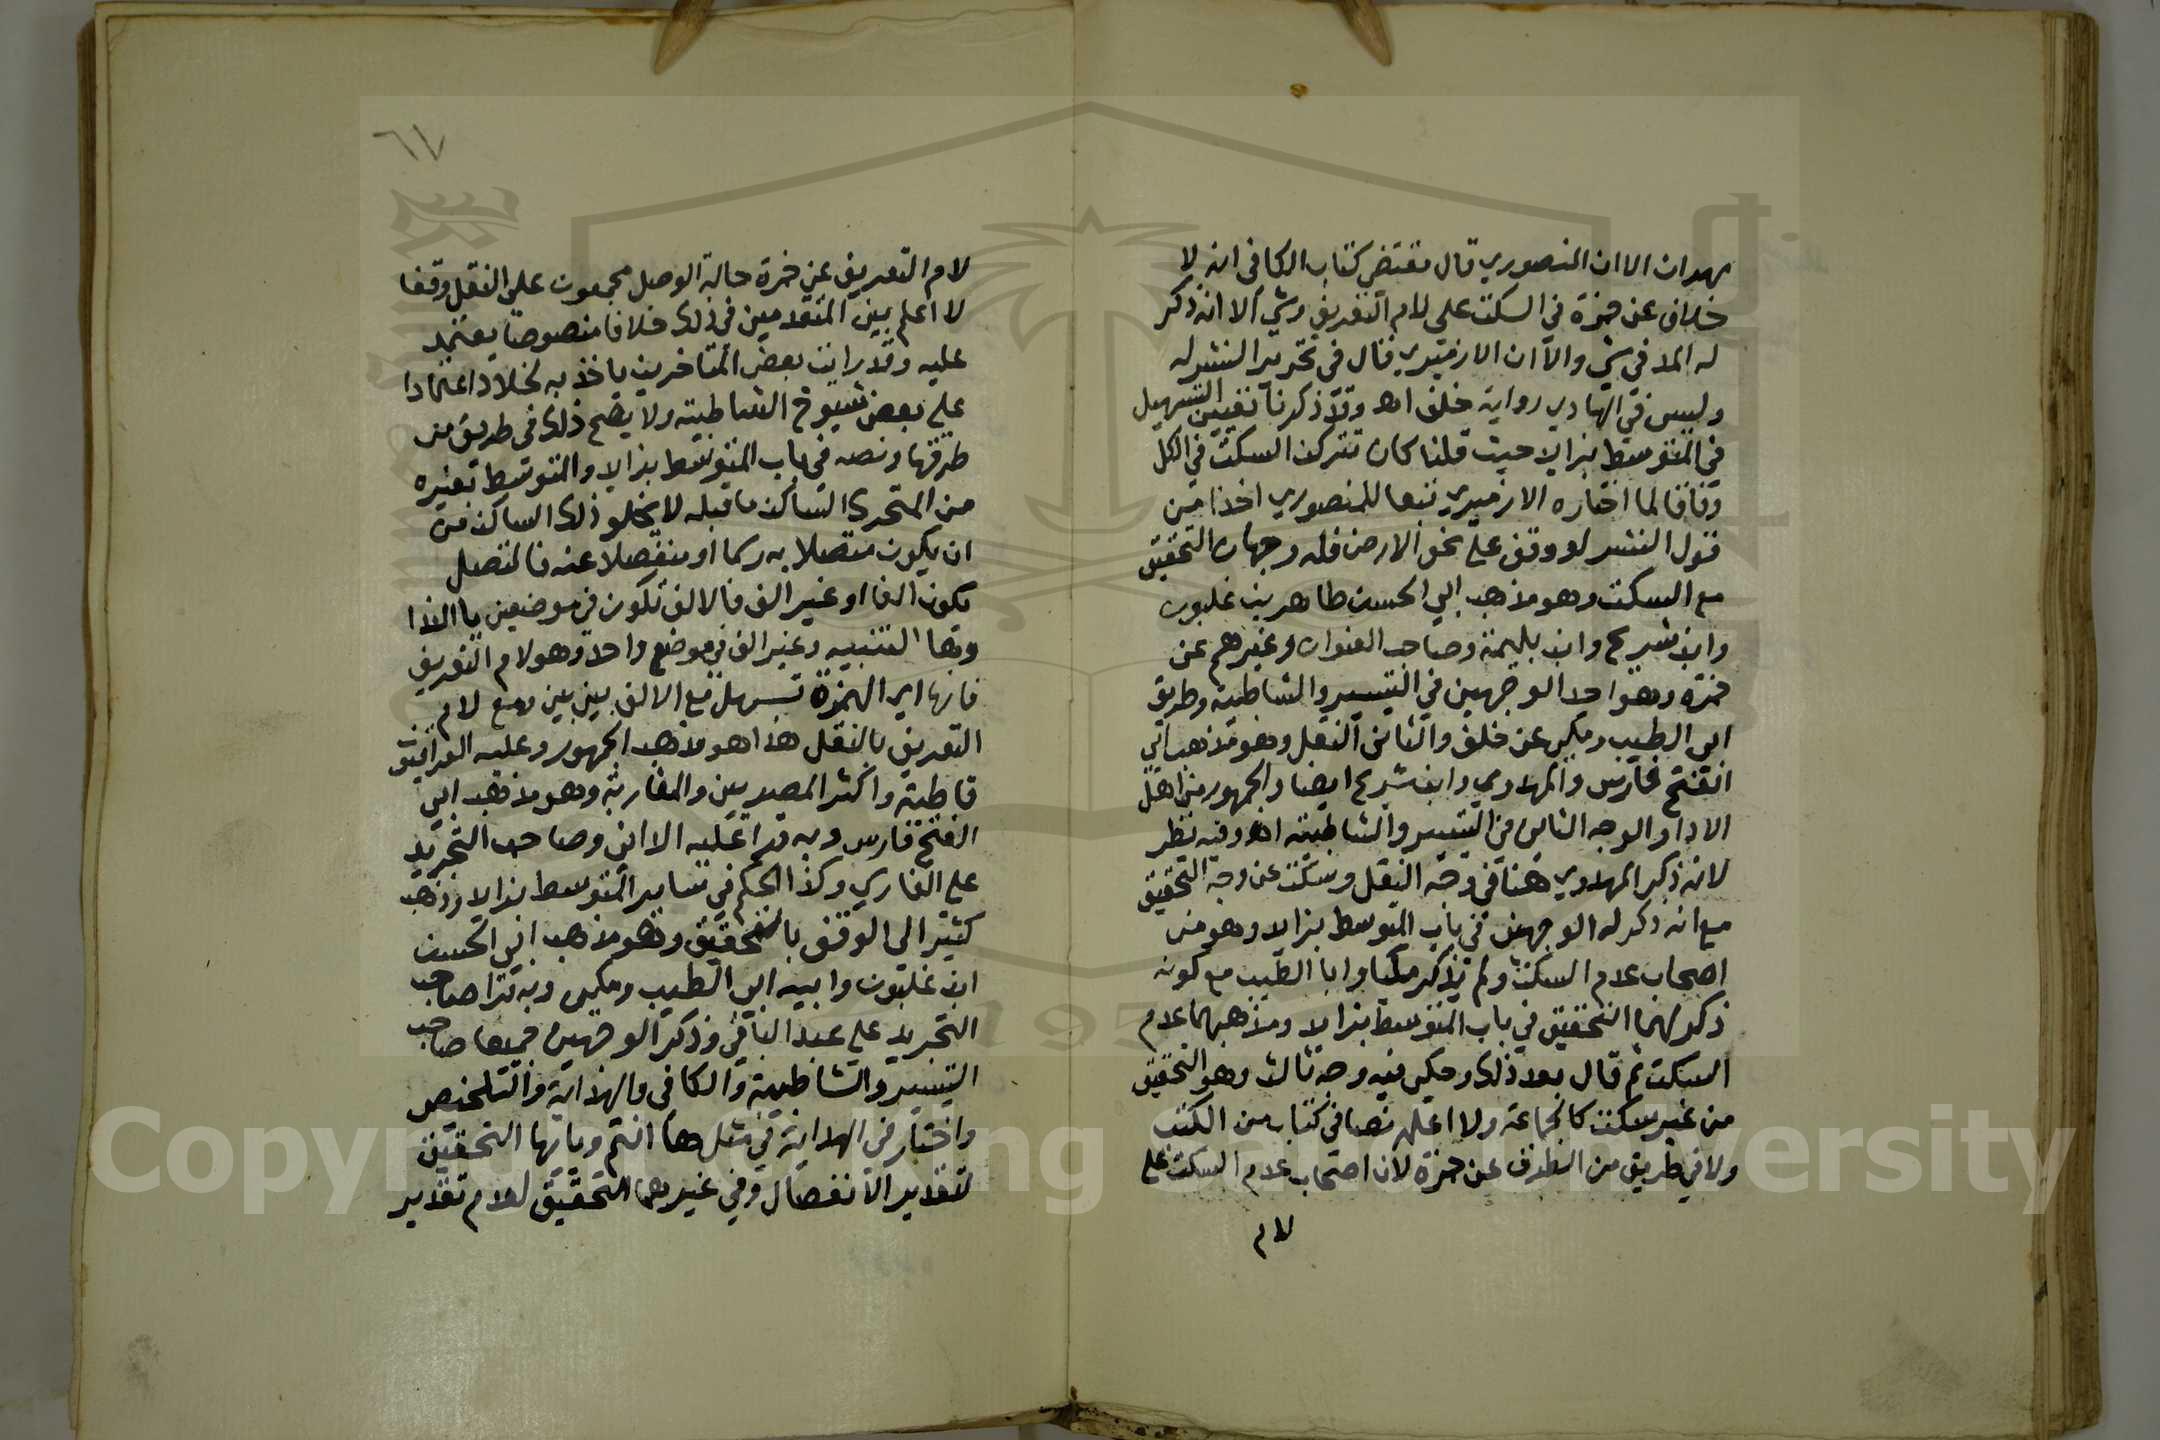 مهران الا ان المنصوري قال مقتضى كتاب الكافي انه لا
خلاف عن حمزة في السكت على لام التعريف وشيء الا انه ذكر
له المد في شيء والا ان الازميري قال في تحرير النشر له
وليس في الهادي رواية خلف اه وقد ذكرنا تعيين التسهيل
في المتوسط بزايد حيث قلنا كان تترك السكت في الكل
وفاقا لما اختاره الازميري تبعا للمنصوري اخذا من
قول النشر لو وقف على نحو الارض فله وجهان التحقيق
مع السكت وهو مذهب ابي الحسن طاهر بن غلبون
وابن شريح وابن بليمة وصاحب العنوان وغيرهم عن
حمزة وهو احد الوجهين في التيسير والشاطبية وطريق
ابي الطيب ومكي عن خلف والثاني النقل وهو مذهب ابي
الفتح فارس والمهدوي وابن شريح ايضا والجمهور من اهل
الاداء والوجه الثاني في التيسير والشاطبية اه وفيه نظر
لانه ذكر المهدوي هنا في وجه النقل وسكت عن وجه التحقيق
مع انه ذكر له الوجهين في باب المتوسط بزايد وهو من
اصحاب عدم السكت ولم يذكر مكيا وابا الطيب مع كونه
ذكر لهما التحقيق في باب المتوسط بزايد ومذهبهما عدم
السكت ثم قال بعد ذلك وحكي فيه وجه ثالث وهو التحقيق
من غير سكت كالجماعة ولا اعلمه نصا في كتاب من الكتب
ولا في طريق من الطرق عن حمزة لان اصحاب عدم السكت على
لام
٦٧
لام التعريف عن حمزة حالة الوصل مجمعون على النقل وقفا
لا اعلم بين المتقدمين في ذلك خلافا منصوصا يعتمد
عليه وقد رايت بعض المتاخرين ياخذ به لخلاد اعتمادا
على بعض شيوخ الشاطبية ولا يصح ذلك في طريق من
طرقها ونصه في باب المتوسط بزايد والمتوسط بغيره
من المتحرك الساكن ما قبله لا يخلو ذلك الساكن من
ان يكون متصلا به رسما او منفصلا عنه فالمتصل
يكون الفا او غير الف فالالف تكون في موضعين يا الندا
وها التنبيه وغير الف في موضع واحد وهو لام التعريف
فانها اي الهمزة تسهل مع الالف بين بين ومع لام
التعريف بالنقل هذا هو مذهب الجمهور وعليه العراقيون
قاطبة واكثر المصريين والمغاربة وهو مذهب ابي
الفتح فارس وبه قرا عليه الداني وصاحب التجريد
على الفارسي وكذا الحكم في سائر المتوسط بزايد وذهب
كثير الى الوقف بالتحقيق وهو مذهب ابي الحسن
ابن غلبون وابيه ابي الطيب ومكي وبه قرا صاحب
التجريد على عبد الباقي وذكر الوجهين جميعا صاحب
التيسير والشاطبية والكافي والهداية والتلخيص
واختار في الهداية في مثل ها انتم وبابها التحقيق
لتقدير الانفصال وفي غيرهما التحقيق لعدم تقدير